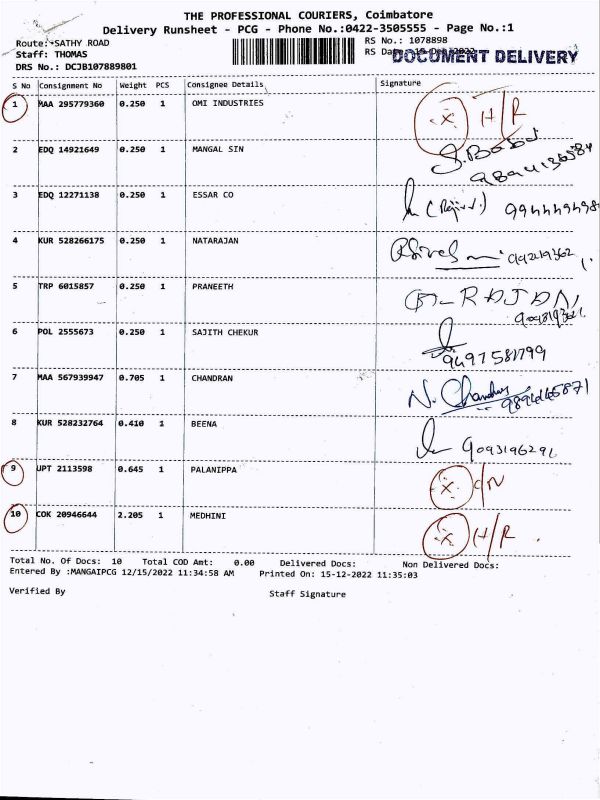 THE PROFESSIONAL COURIERS, Coimbatore
Delivery Runsheet - PCG - Phone No.:0422-3505555 - Page No.:1
Route: SATHY ROAD RS No.: 1078898
Staff: THOMAS RS Date: 15-Dec-2022 DOCUMENT DELIVERY
DRS No.: DCJB107889801
S No Consignment No Weight PCS Consignee Details Signature
1 MAA 295779360 0.250 1 OMI INDUSTRIES X H/R
2 EDQ 14921649 0.250 1 MANGAL SIN
3 EDQ 12271138 0.250 1 ESSAR CO
4 KUR 528266175 0.250 1 NATARAJAN
5 TRP 6015857 0.250 1 PRANEETH
6 POL 2555673 0.250 1 SAJITH CHEKUR 9497581799
7 MAA 567939947 0.705 1 CHANDRAN
8 KUR 528232764 0.410 1 BEENA 9093196296
9 UPT 2113598 0.645 1 PALANIPPA X C/N
10 COK 20946644 2.205 1 MEDHINI X H/R
Total No. Of Docs: 10 Total COD Amt: 0.00 Delivered Docs: Non Delivered Docs:
Entered By :MANGAIPCG 12/15/2022 11:34:58 AM Printed On: 15-12-2022 11:35:03
Verified By Staff Signature